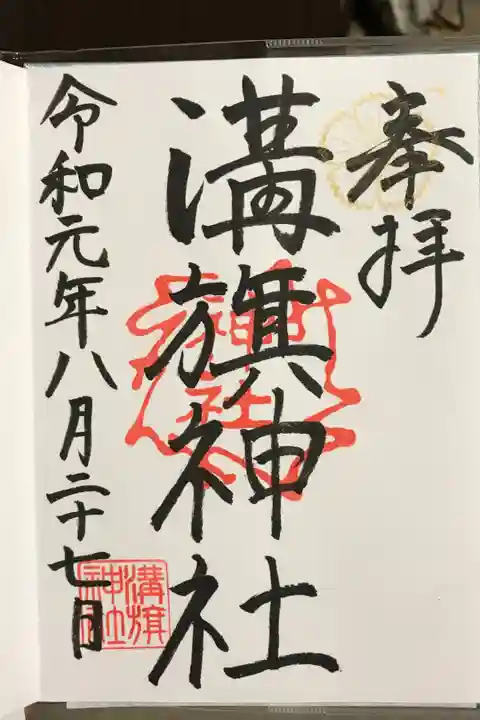 奉拝
溝旗神社
令和元年八月二十七日
溝旗
神社